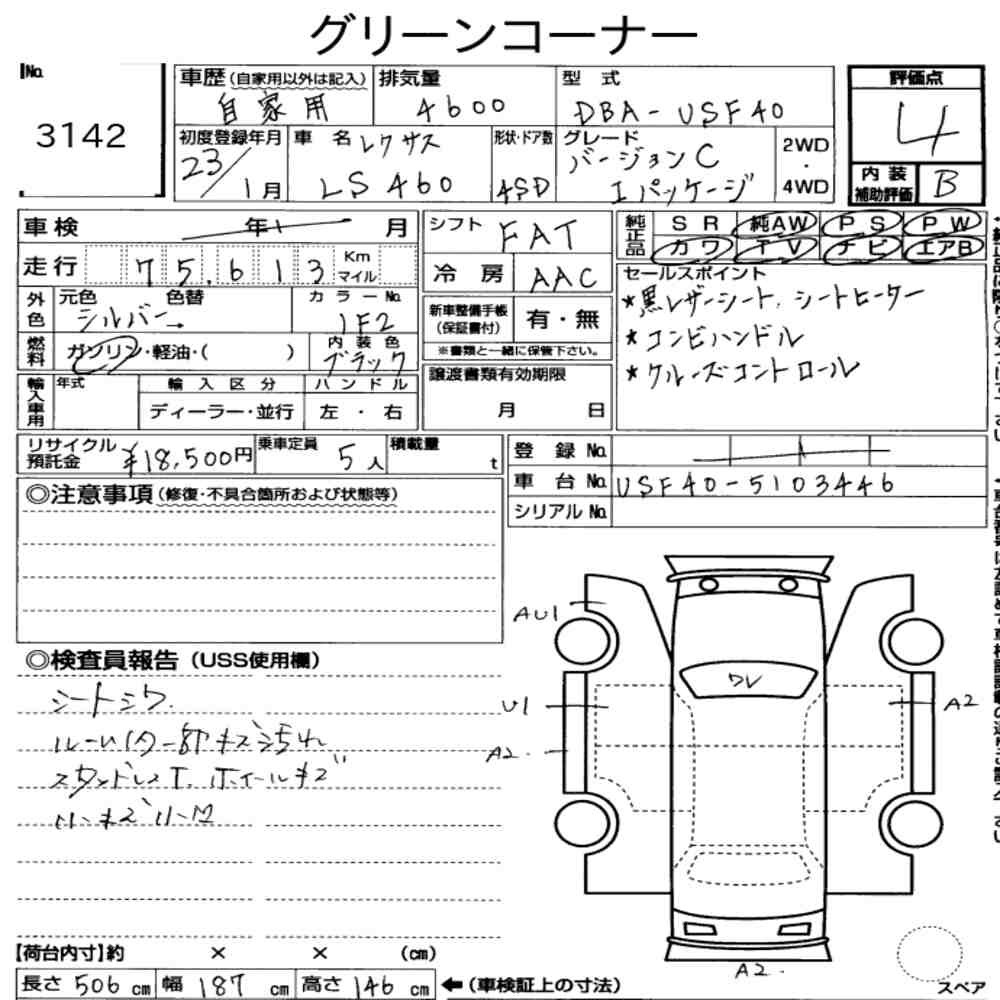 グリーンコーナー
No.
3142
車歴 (自家用以外は記入) 自家用
排気量 4600
型式 DBA-USF40
評価点 4
初度登録年月 23/1月
車名 レクサス LS460
形状・ドア数 4SD
グレード バージョンC Iパッケージ
2WD・4WD
内装補助評価 B
車検 年 月
シフト FAT
純正品 SR 純AW PS PW
カワ TV ナビ エアB
走行 75,613 Km マイル
冷房 AAC
セールスポイント
*黒レザーシート、シートヒーター
*コンビハンドル
*クルーズコントロール
外色 元色 色替 シルバー
カラーNo. 1F2
新車整備手帳(保証書付) 有・無
※書類と一緒に保管下さい。
燃料 ガソリン・軽油・( )
内装色 ブラック
譲渡書類有効期限
月 日
輸入車用 年式 輸入区分 ハンドル
ディーラー・並行 左・右
リサイクル預託金 ¥18,500円
乗車定員 5人
積載量 t
登録No.
車台No. USF40-5103446
シリアルNo.
◎注意事項(修復・不具合箇所および状態等)
◎検査員報告(USS使用欄)
シートシワ.
スタッドレスT. ホイールキズ
小キズ小凹
AU1
U1
A2.
ワレ
A2
A2.
【荷台内寸】約 × × (cm)
長さ 506 cm 幅 187 cm 高さ 146 cm ←(車検証上の寸法)
スペア